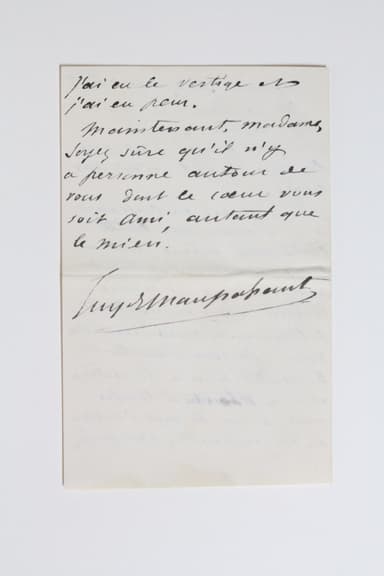 j'ai eu le vertige et
j'ai eu peur.
Maintenant, madame,
soyez sûre qu'il n'y
a personne autour de
vous dont le cœur vous
soit ami, autant que
le mien.
Guy de Maupassant